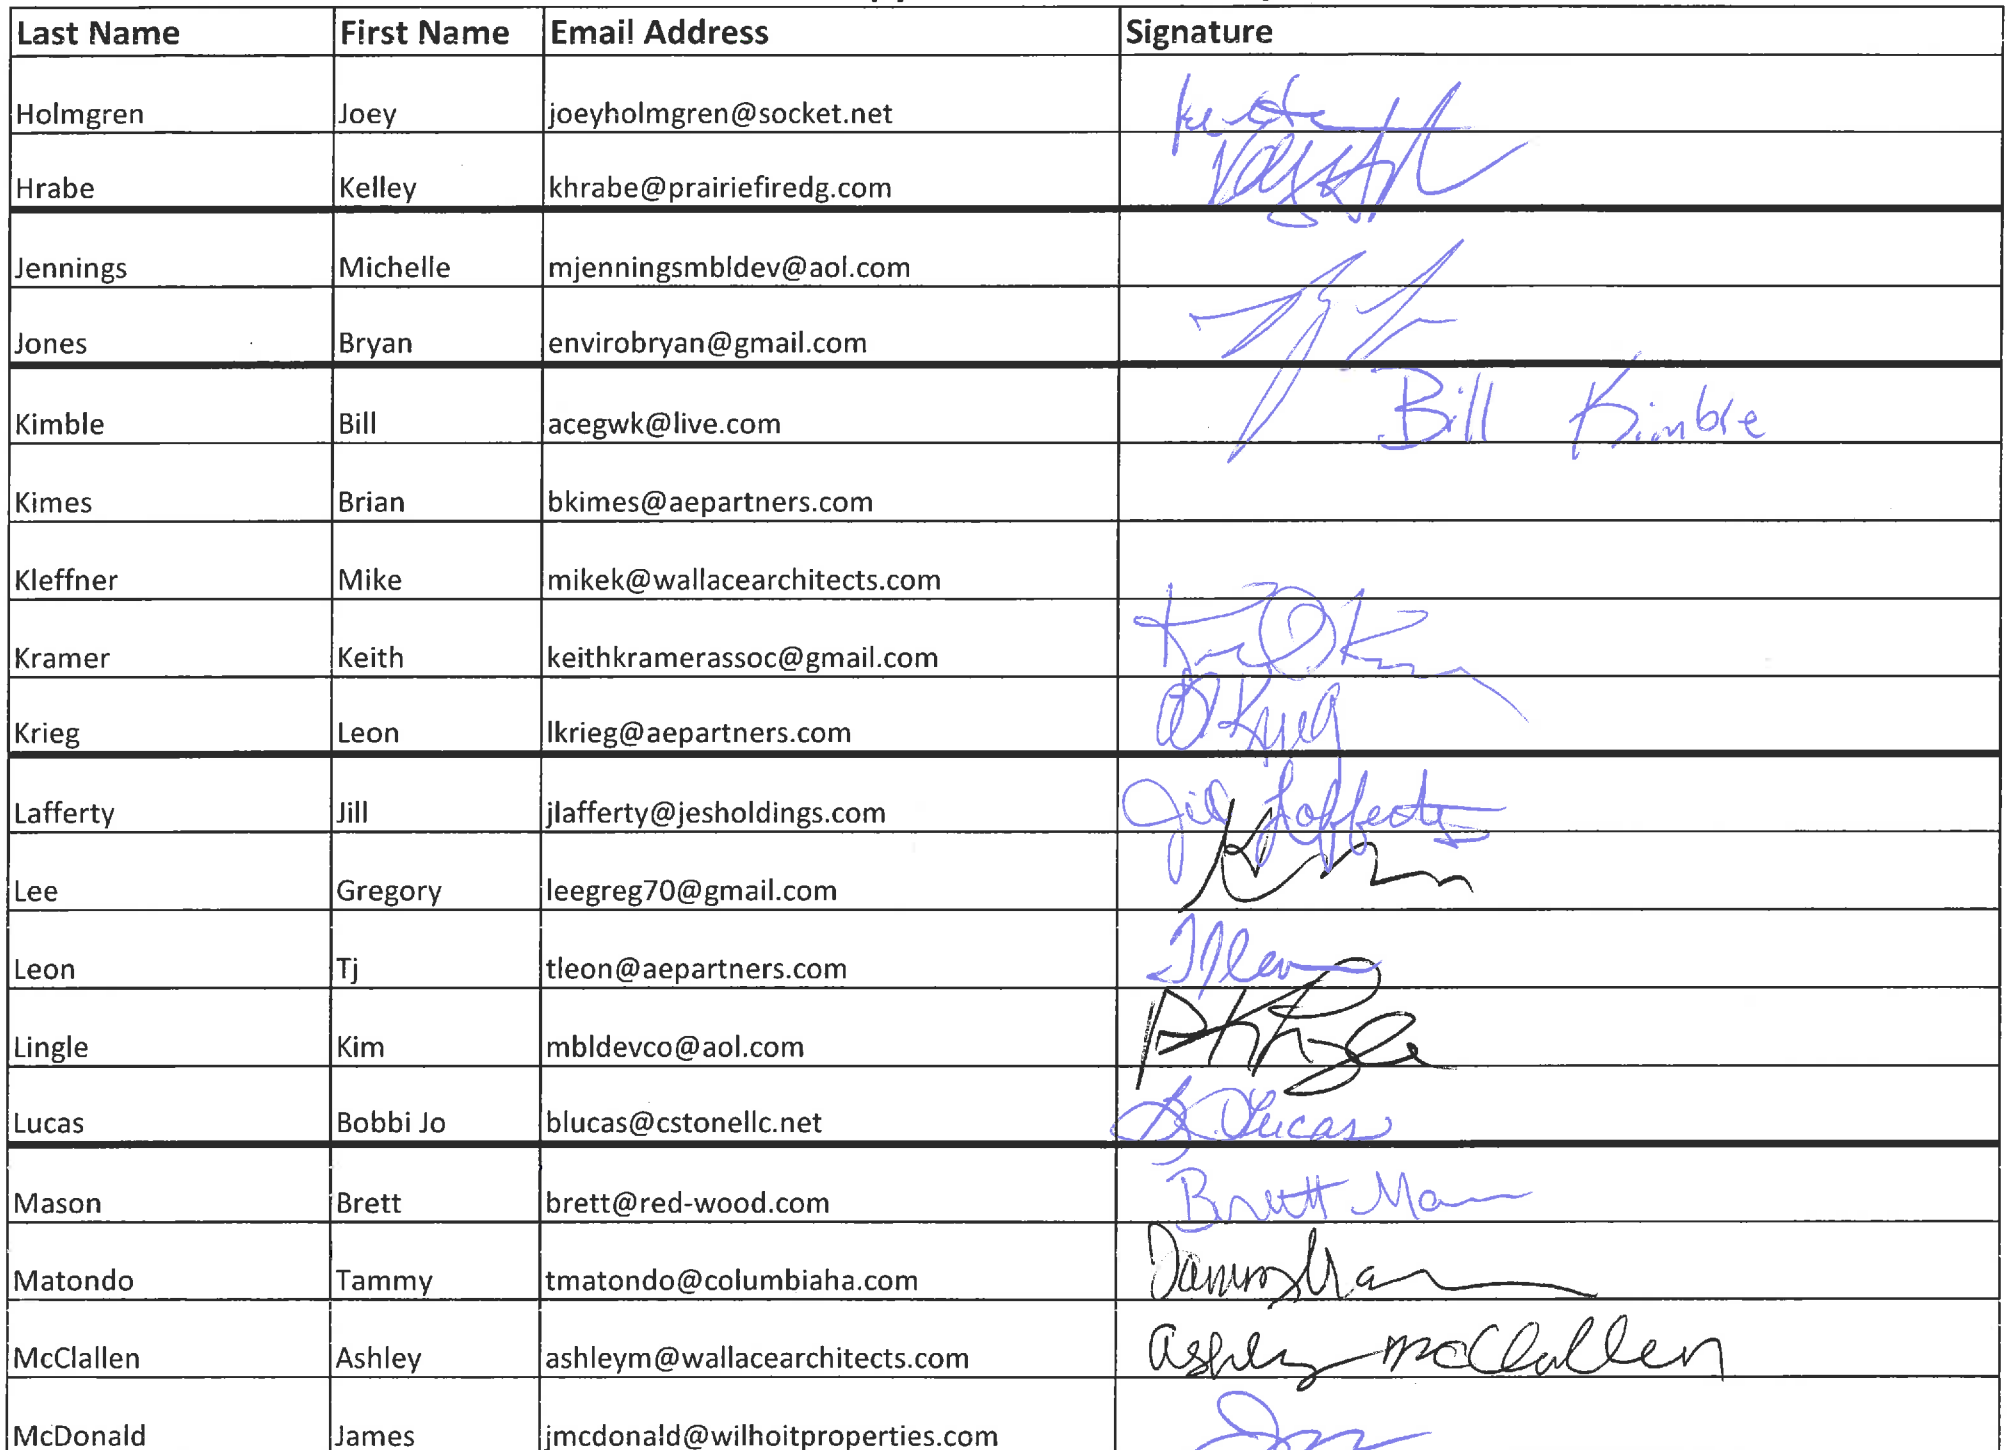 Last Name First Name Email Address Signature
Holmgren Joey joeyholmgren@socket.net
Hrabe Kelley khrabe@prairiefiredg.com
Jennings Michelle mjenningsmbldev@aol.com
Jones Bryan envirobryan@gmail.com
Kimble Bill acegwk@live.com Bill Kimble
Kimes Brian bkimes@aepartners.com
Kleffner Mike mikek@wallacearchitects.com
Kramer Keith keithkramerassoc@gmail.com
Krieg Leon lkrieg@aepartners.com Krieg
Lafferty Jill jlafferty@jesholdings.com Jill Lafferty
Lee Gregory leegreg70@gmail.com
Leon Tj tleon@aepartners.com TJ Leon
Lingle Kim mbldevco@aol.com
Lucas Bobbi Jo blucas@cstonellc.net Lucas
Mason Brett brett@red-wood.com Brett Mason
Matondo Tammy tmatondo@columbiaha.com Tammy
McClallen Ashley ashleym@wallacearchitects.com Ashley McClallen
McDonald James jmcdonald@wilhoitproperties.com